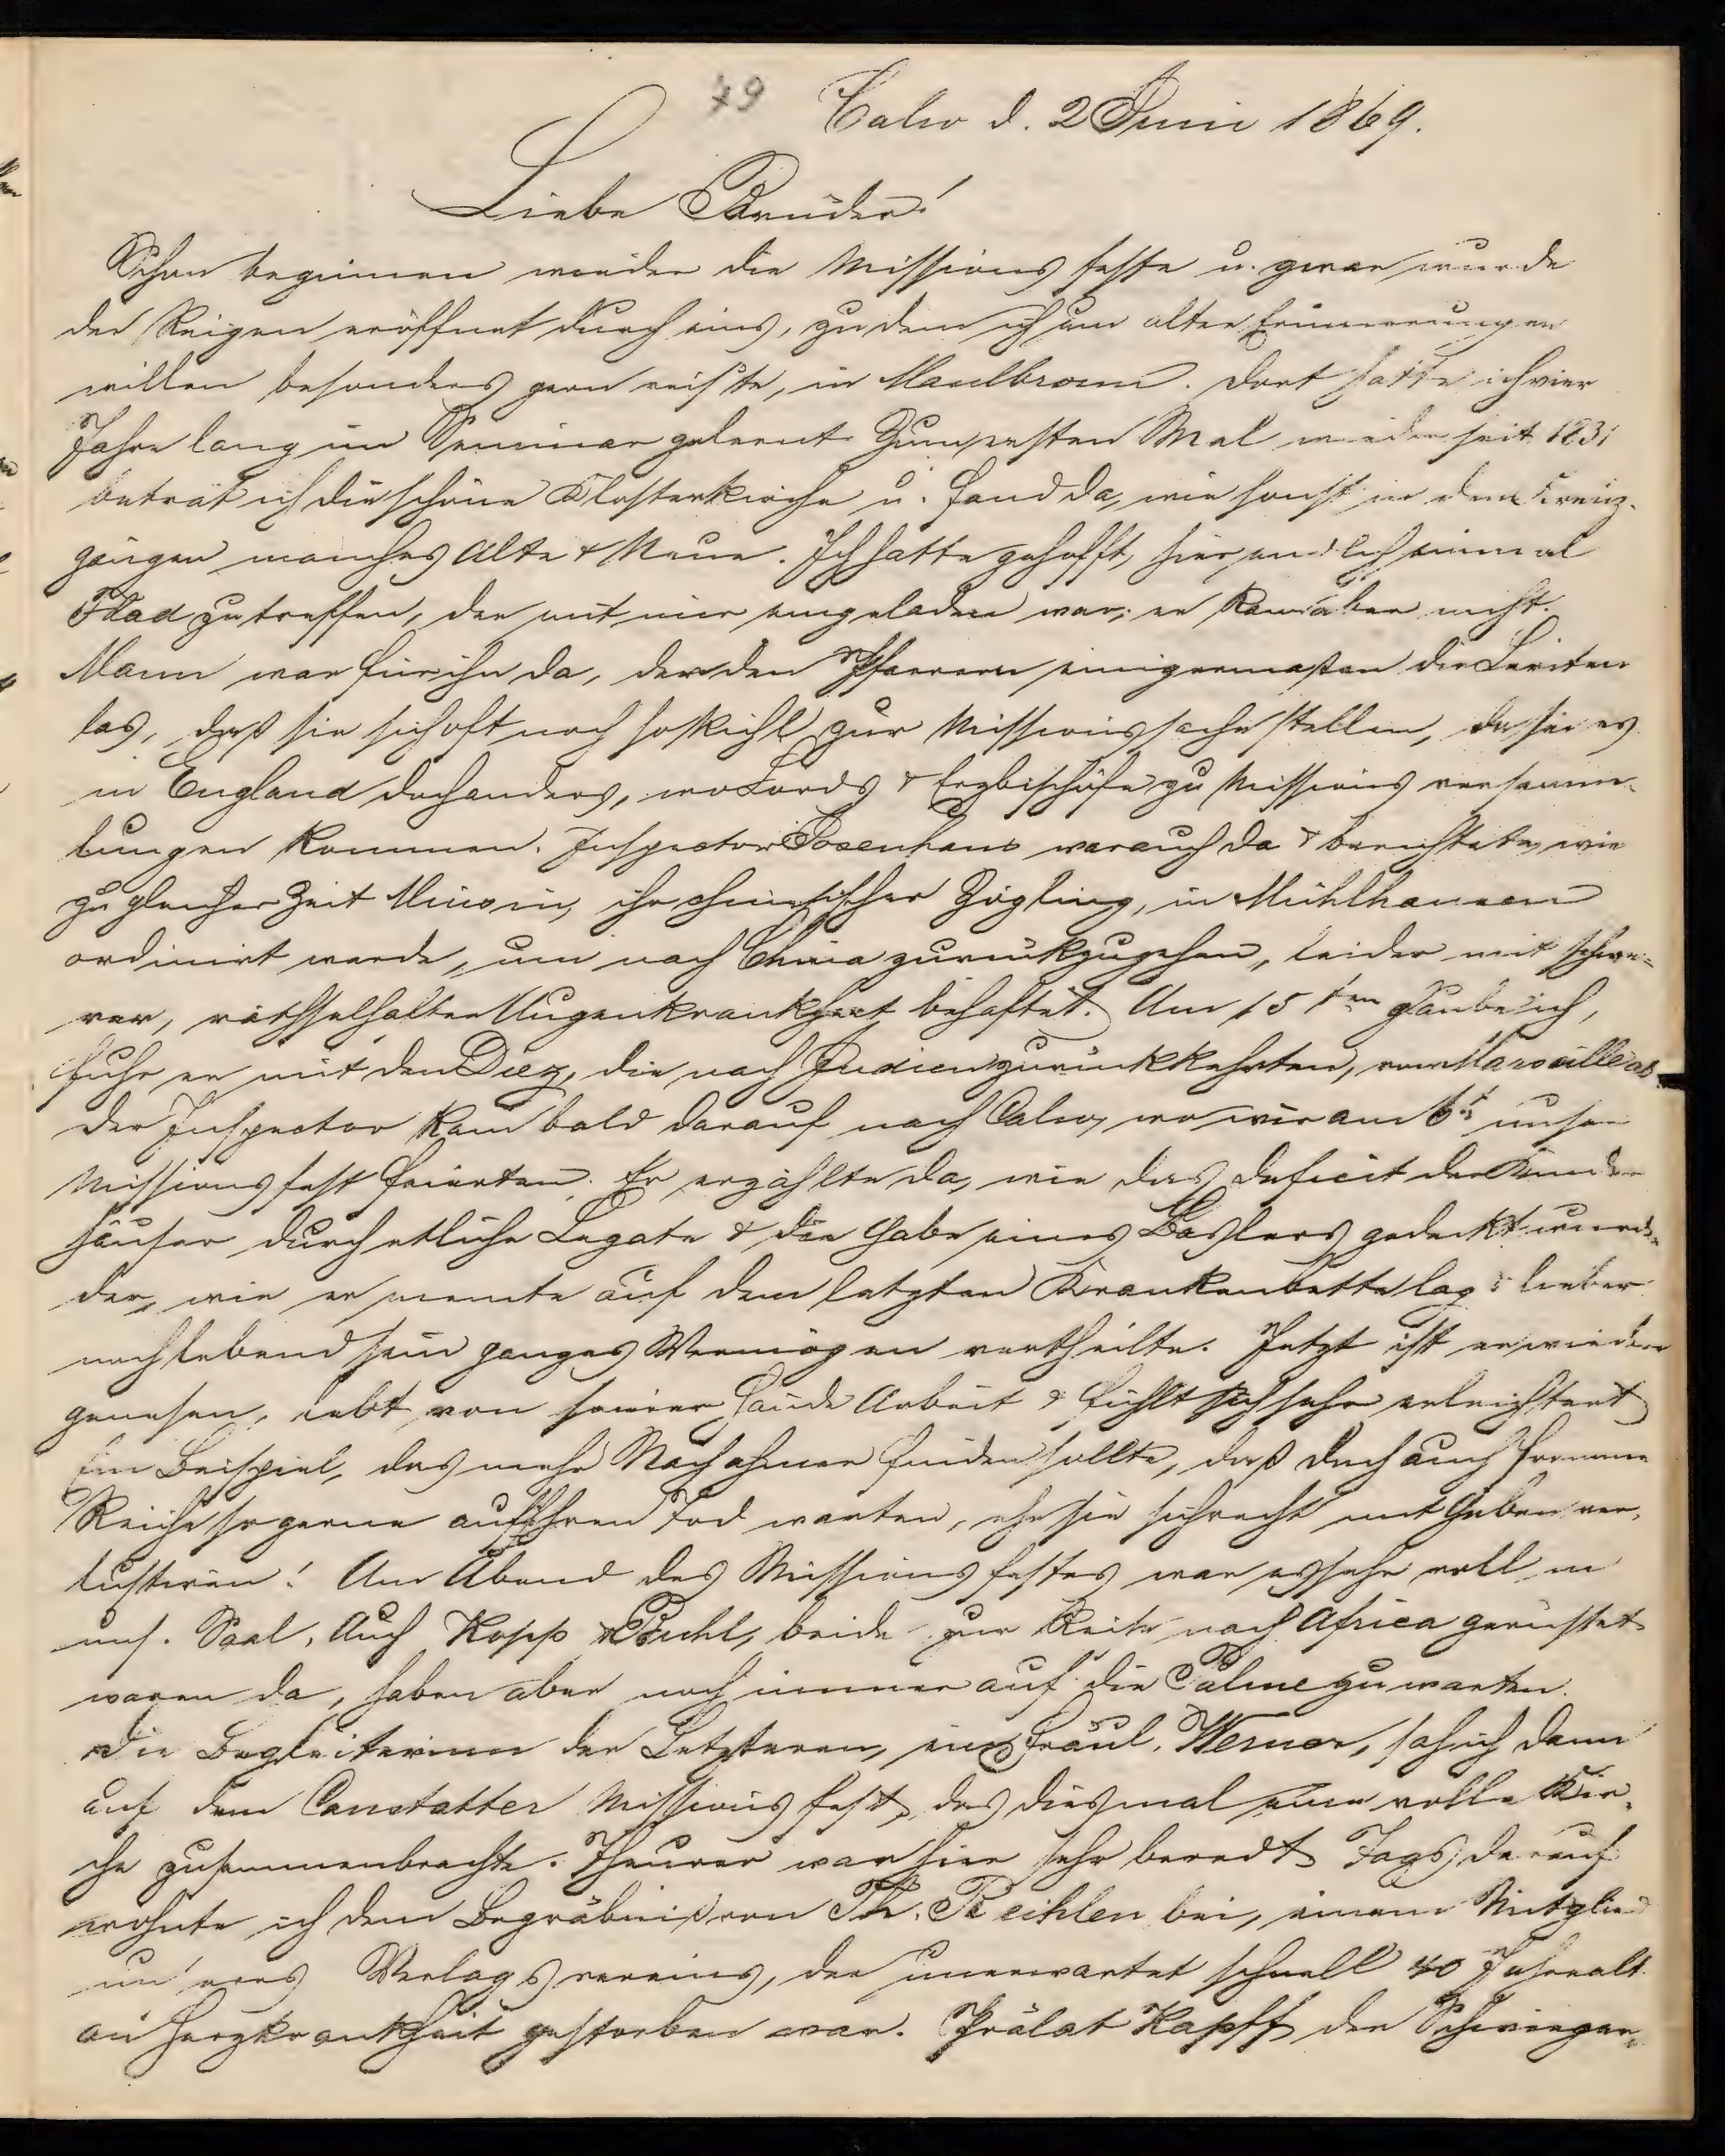 49
Calw d. 2 Juni 1869.
Liebe Brüder!
Schon beginnen wieder die Missionsfeste u. zwar wurde
der Reigen eröffnet durch eins, zu dem ich um alter Erinnerungen
willen besonders gern reiste, in Maulbronn. Dort hatte ich vier
Jahre lang im Seminar gelernt. Zum ersten Mal wieder seit 1831
betrat ich die schöne Klosterkirche u. fand da, wie sonst in den Kreuz-
gängen manches Alte & Neue. Ich hatte gehofft, hier endlich einmal
Flad zu treffen, der mit mir eingeladen war; er kam aber nicht.
Mann war für ihn da, der den Pfarrern einigermaßen die Leviten
las, daß sie sich oft noch so kühl zur Missionssache stellen, da sei es
in England doch anders, wo Lords & Erzbischöfe zu Missionsversamm-
lungen kommen. Inspector Josenhans war auch da & berichtete, wie
zu gleicher Zeit Minsin, ihr chinesischer Zögling, in Mühlhausen
ordinirt werde, um nach China zurückzugehen, leider mit schwe-
rer, räthselhafter Augenkrankheit behaftet. Am 15ten glaube ich,
fuhr er mit den Diez, die nach Indien zurückkehrten, von Marseille ab
Der Inspector kam bald darauf nach Calw, wo wir am 6. unser
Missionsfest feierten. Er erzählte da, wie das Deficit der Kinder
häuser durch etliche Legate & die Gabe eines Baslers gedeckt wurde
der, wie er meinte auf dem letzten Krankenbette lag & lieber
noch lebend sein ganzes Vermögen vertheilte. Jetzt ist er wieder
genesen, lebt von seiner Hände Arbeit & fühlt sich sehr erleichtert
Ein Beispiel, das mehr Nachahmer finden sollte, daß doch auch fromme
Reiche so gerne auf ihren Tod warten, ehe sie sich recht mit Geben ver-
lustiren! Am Abend des Missionsfestes war es sehr voll in
uns. Saal. Auch Kopp & Buhl, beide zur Reise nach Africa gerüstet
waren da, haben aber noch immer auf die Palme zu warten.
Die Begleiterinn der Letzteren, eine Fräul. Werner, sah ich dann
auf dem Canstatter Missionsfest, das diesmal eine volle Kir-
che zusammenbrachte. Theurer war hier sehr beredt. Tags darauf
wohnte ich dem Begräbniß von Th. Reihlen bei, einem Mitglied
uns'eres Verlagsvereins, der unerwartet schnell 40 Jahre alt
an Herzkrankheit gestorben war. Prälat Kapff der Schwieger-